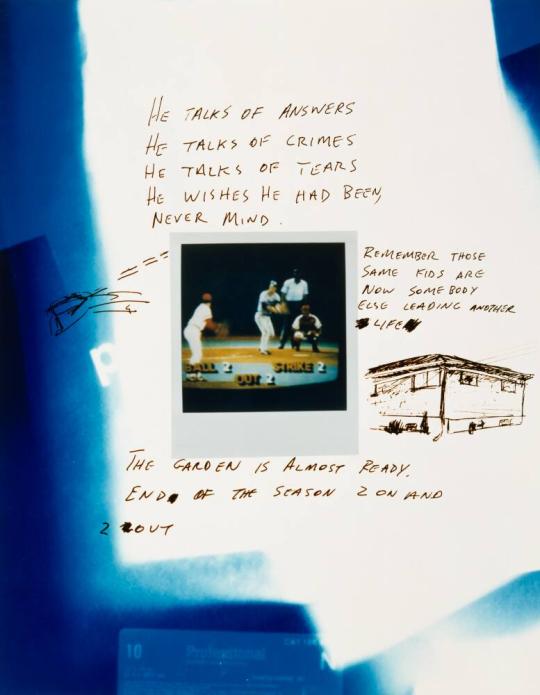 HE TALKS OF ANSWERS
HE TALKS OF CRIMES
HE TALKS OF TEARS
HE WISHES HE HAD BEEN,
NEVER MIND.
REMEMBER THOSE
SAME KIDS ARE
NOW SOMEBODY
ELSE LEADING ANOTHER
LIFE
BALL 2 STRIKE 2
OUT 2
THE GARDEN IS ALMOST READY.
END OF THE SEASON 2 ON AND
2 OUT
10 Professional